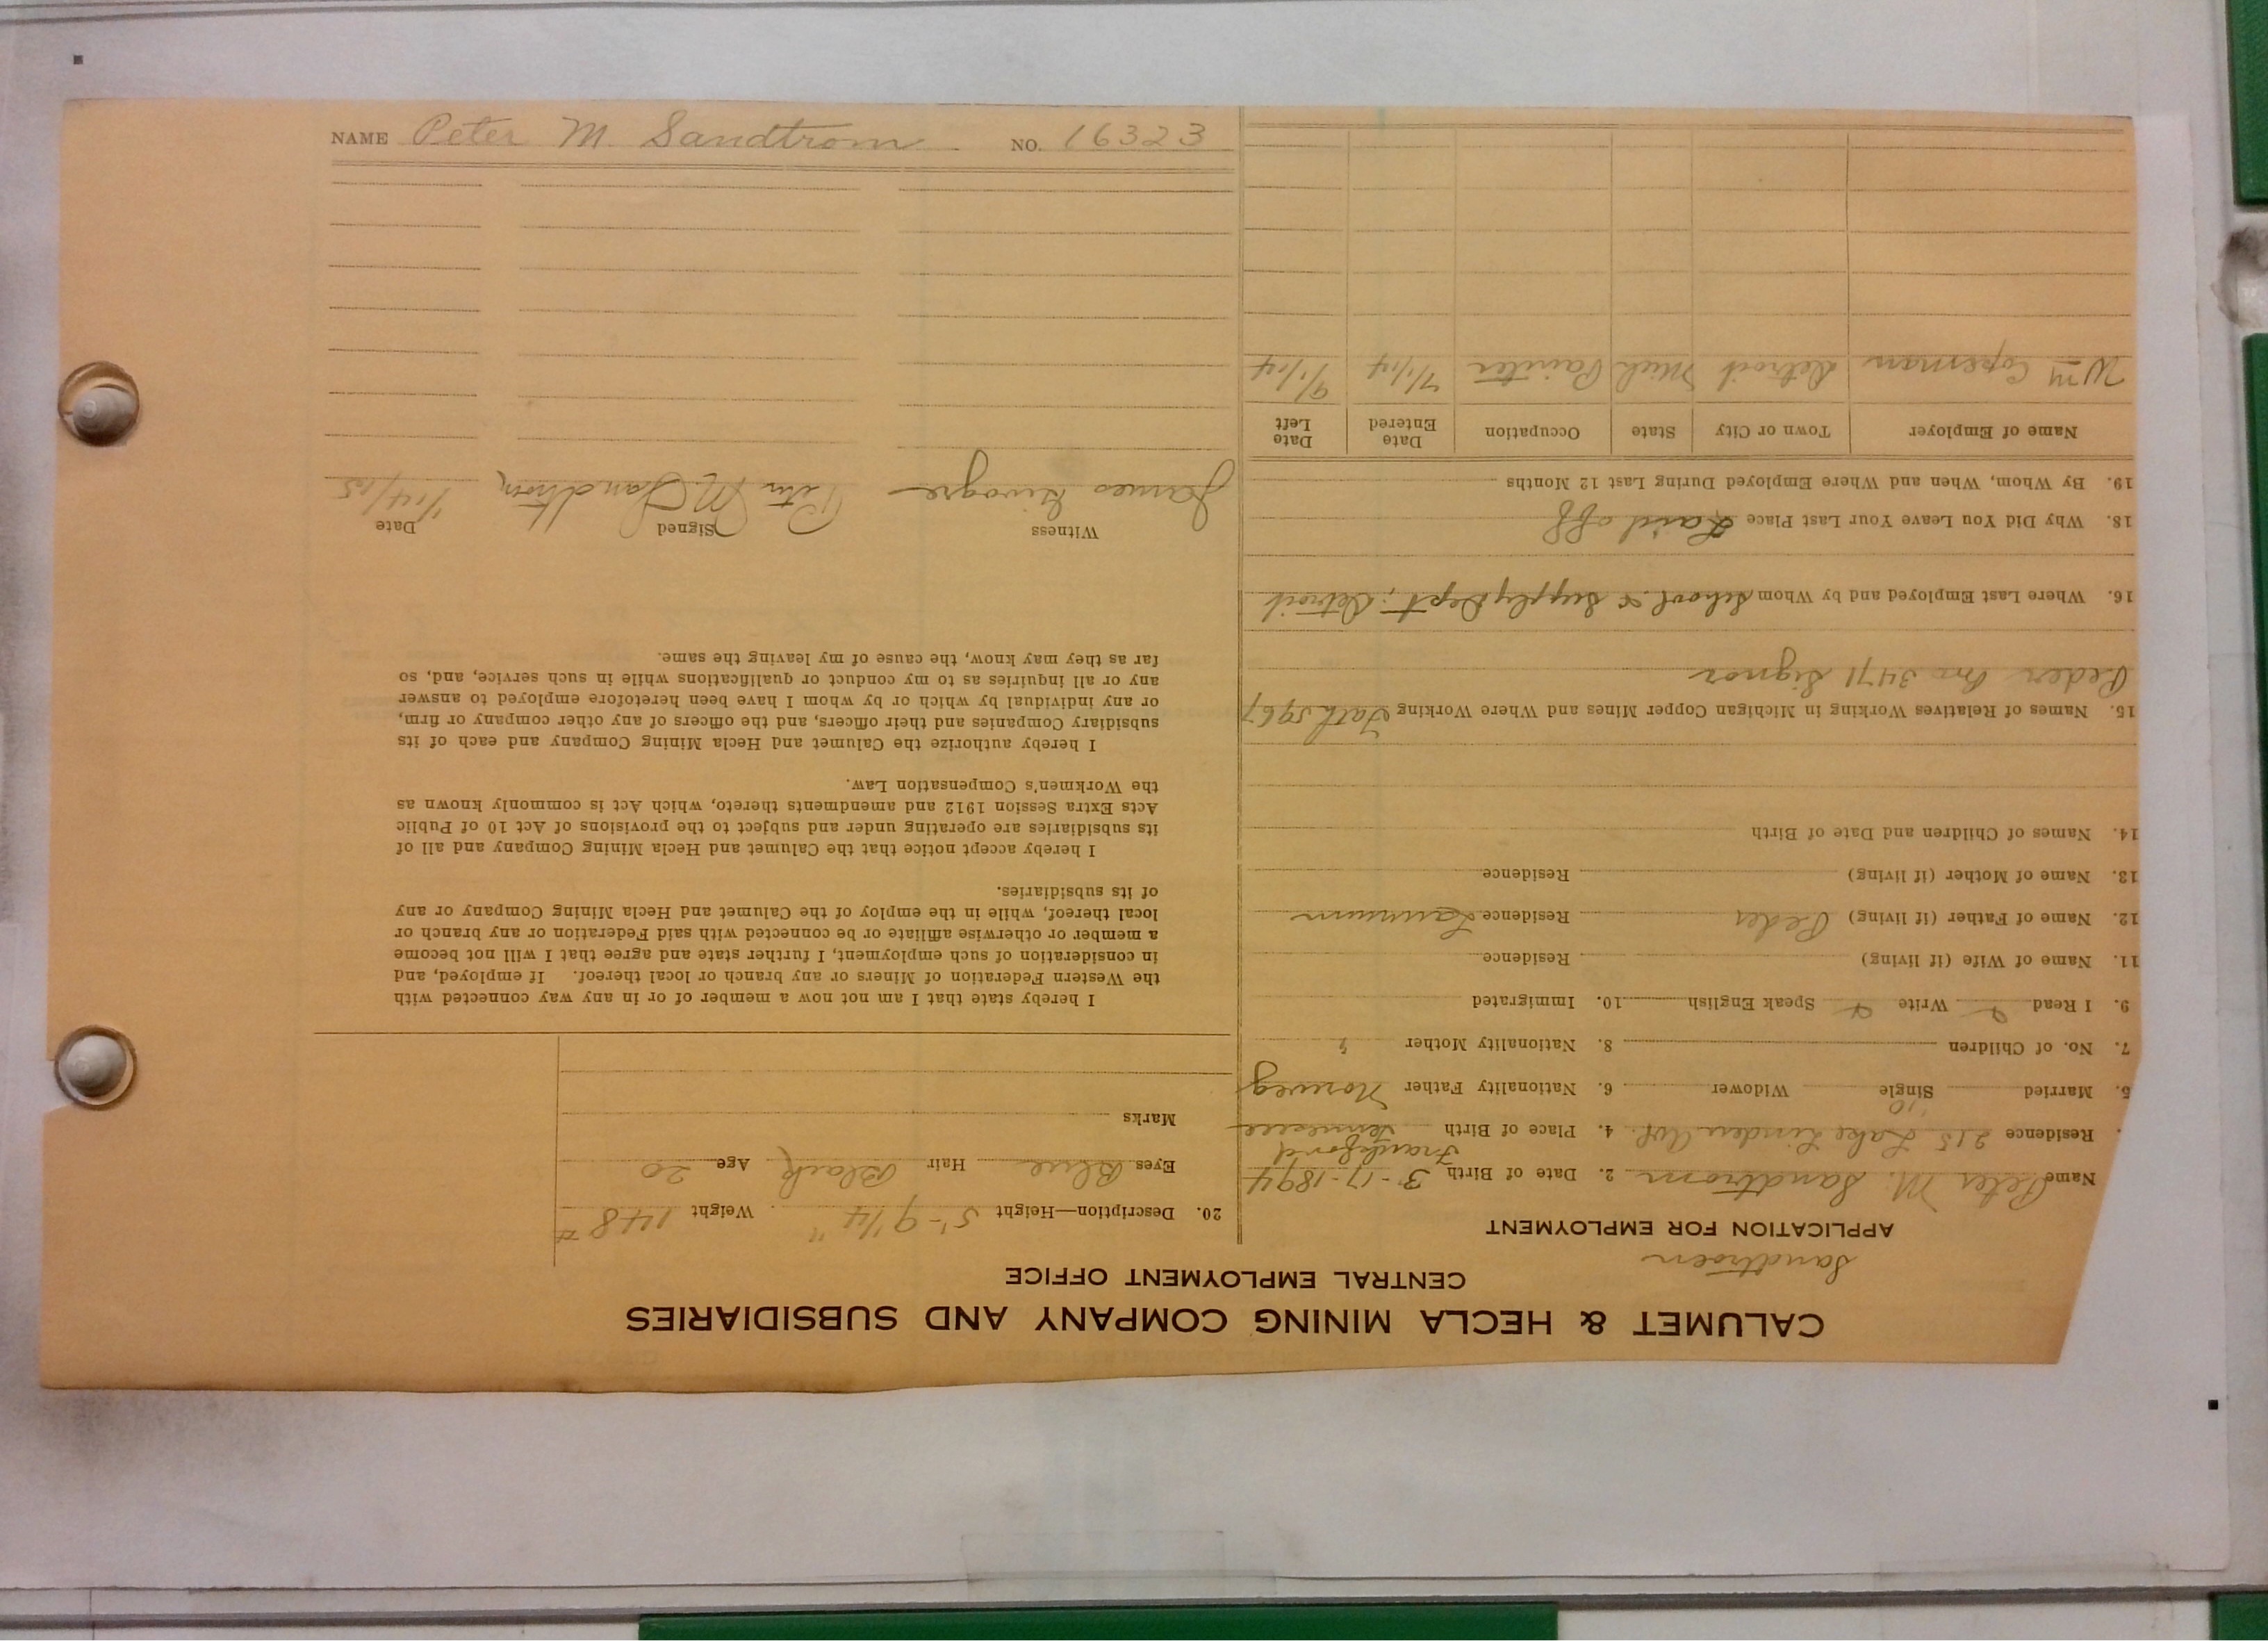 CALUMET & HECLA MINING COMPANY AND SUBSIDIARIES
CENTRAL EMPLOYMENT OFFICE
Sandtroen
APPLICATION FOR EMPLOYMENT
Name Peter M. Sandtrom 2. Date of Birth 3-17-1894
Residence 215 Lake Linden Ave. 4. Place of Birth Frankford
5. Married Single Widower 6. Nationality Father Norweg
7. No. of Children 8. Nationality Mother "
9. I Read Write Speak English 10. Immigrated
11. Name of Wife (if living) Residence
12. Name of Father (if living) Peder Residence Laurium
13. Name of Mother (if living) Residence
14. Names of Children and Date of Birth
15. Names of Relatives Working in Michigan Copper Mines and Where Working Fath 5967
Peder Bro 3471 Signor
16. Where Last Employed and by Whom School & Supply Dept; Detroit
18. Why Did You Leave Your Last Place Laid off
19. By Whom, When and Where Employed During Last 12 Months
Name of Employer Town or City State Occupation Date Entered Date Left
Wm Coperman Detroit Mich Painter 7/1/14 9/1/14
20. Description—Height 5'-9 1/4" Weight 148 #
Eyes Blue Hair Black Age 20
Marks
I hereby state that I am not now a member of or in any way connected with
the Western Federation of Miners or any branch or local thereof. If employed, and
in consideration of such employment, I further state and agree that I will not become
a member or otherwise affiliate or be connected with said Federation or any branch or
local thereof, while in the employ of the Calumet and Hecla Mining Company or any
of its subsidiaries.
I hereby accept notice that the Calumet and Hecla Mining Company and all of
its subsidiaries are operating under and subject to the provisions of Act 10 of Public
Acts Extra Session 1912 and amendments thereto, which Act is commonly known as
the Workmen's Compensation Law.
I hereby authorize the Calumet and Hecla Mining Company and each of its
subsidiary Companies and their officers, and the officers of any other company or firm,
or any individual by which or by whom I have been heretofore employed to answer
any or all inquiries as to my conduct or qualifications while in such service, and, so
far as they may know, the cause of my leaving the same.
Witness Signed Date
James Peter M. Sandtrom 1/14/15
NAME Peter M. Sandtrom NO. 16323